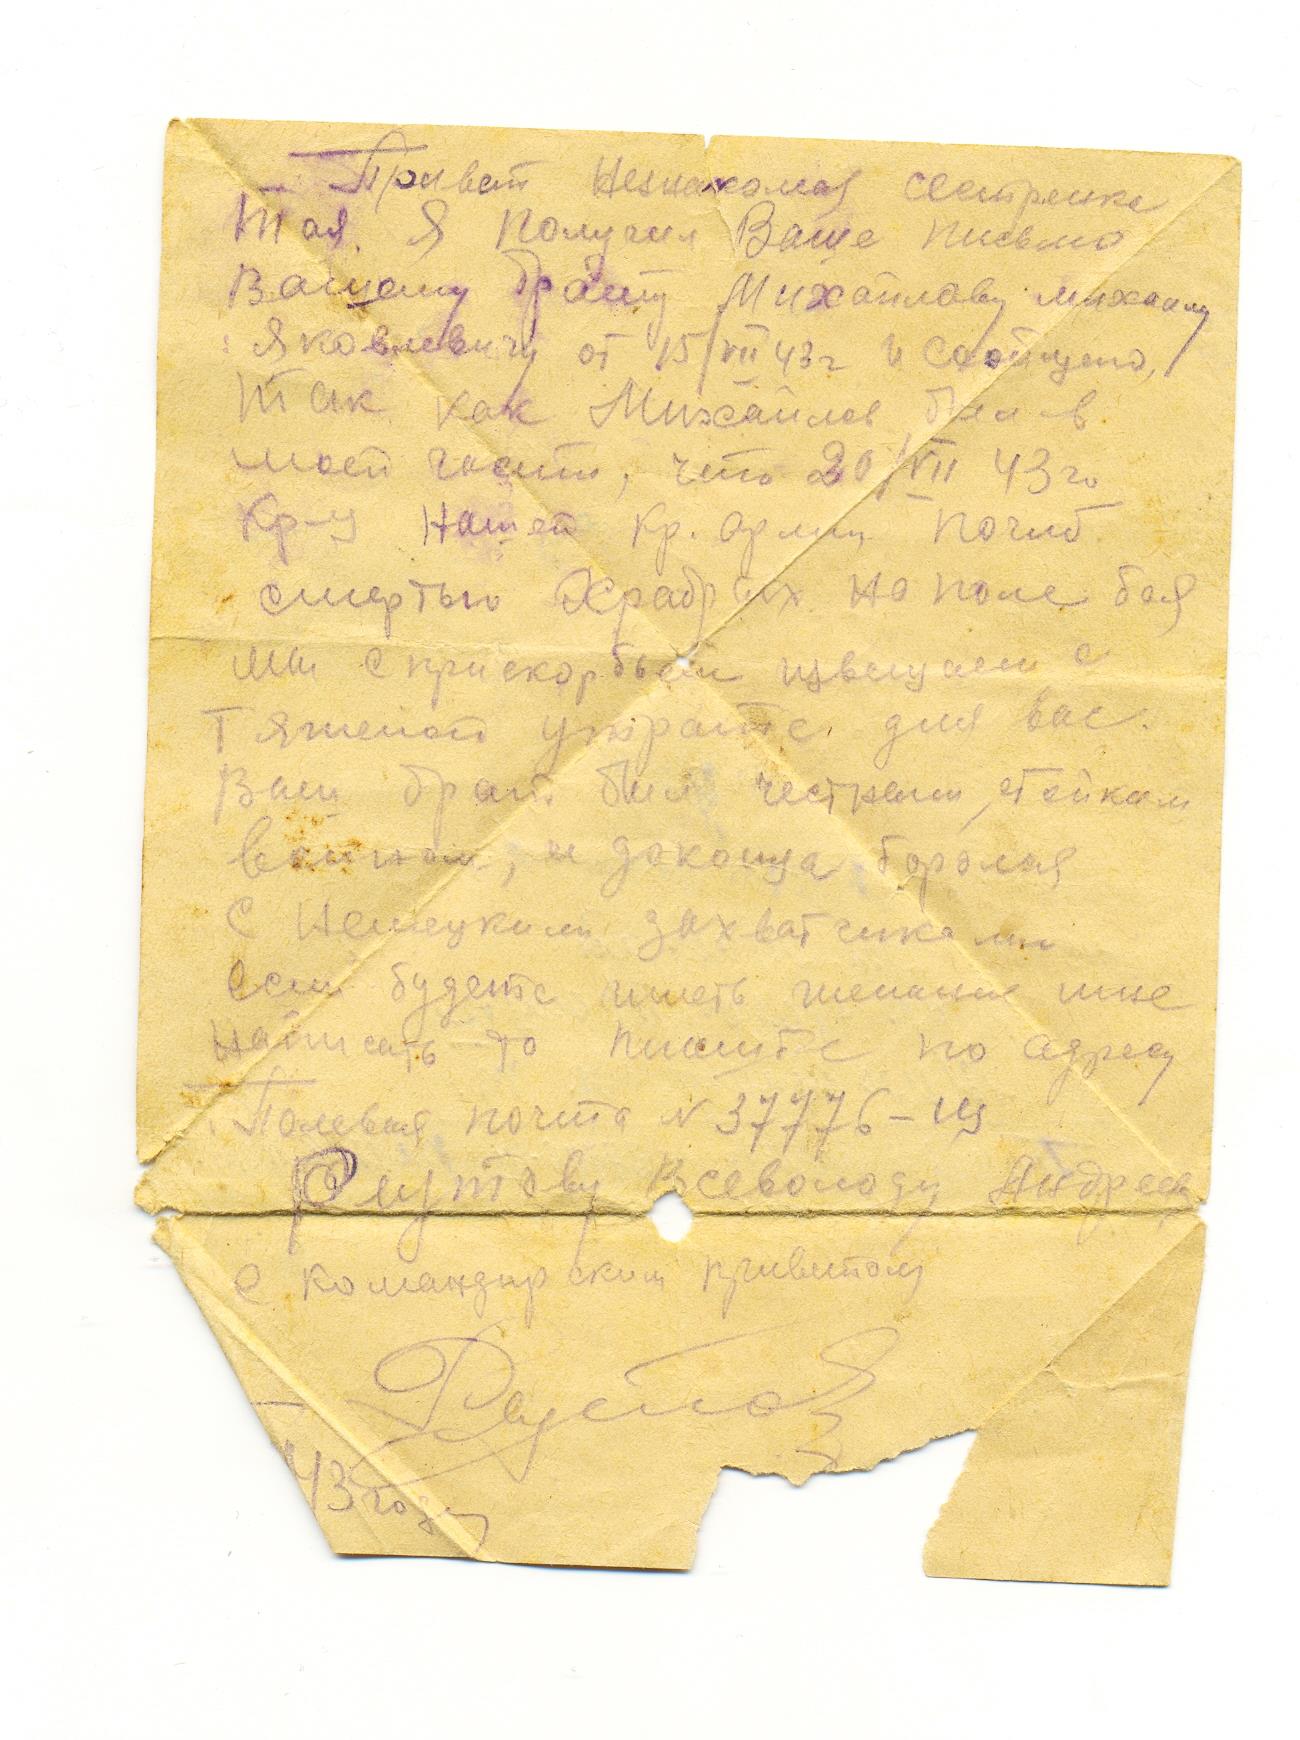 Привет Незнакомая сестренка
Тая. Я получил Ваше письмо
Вашему брату Михайлову михаилу
Яковлевичу от 15/VII 43г и сообщаю,
так как Михайлов был в
моей части, что 20/VII 43го
Кр-ц нашей кр. армии погиб
смертью храбрых на поле боя
мы с прискорбьем извещаем о
тяжелой утрате для вас.
Ваш брат был честным, стойким
воином, и до конца боролся
с немецкими захватчиками
если будете иметь желание мне
написать то пишите по адресу
Полевая почта N 37776-Щ
Всеволоду Андрее
с командирским приветом
43 году